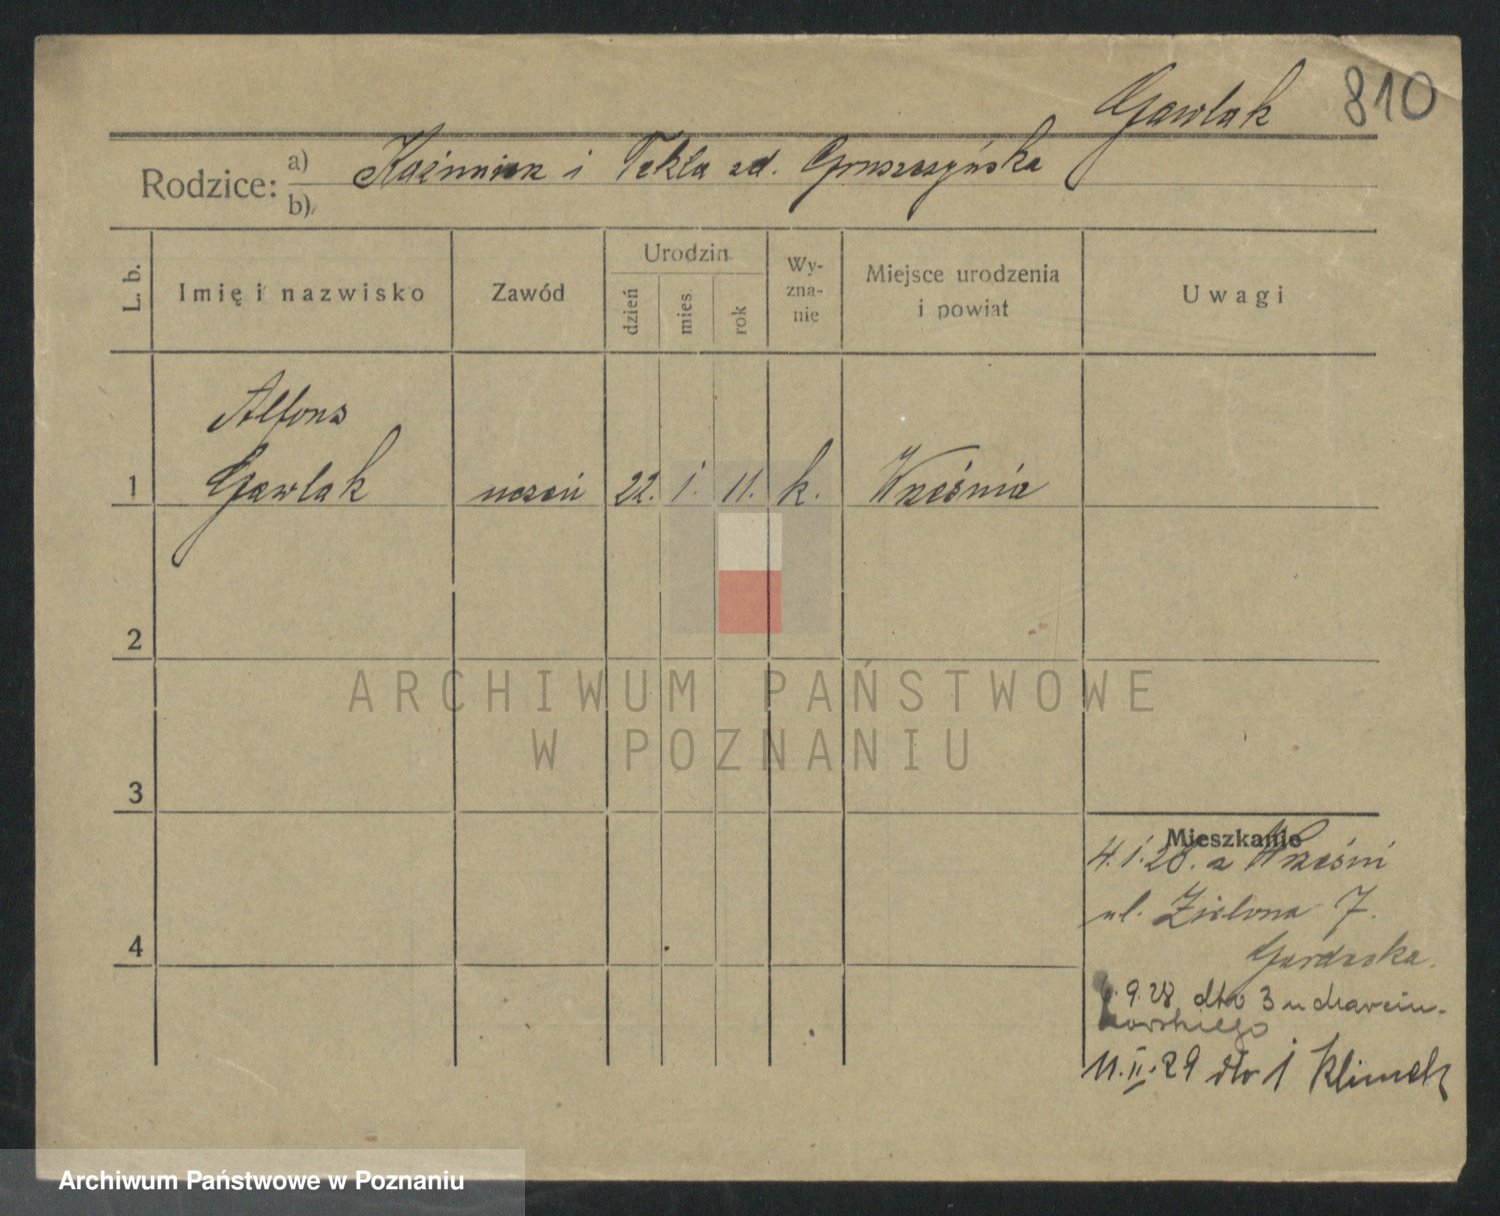 Gawlak 810
Rodzice: a) Kaźmierz i Tekla zd. Gruszczyńska
b)
L. b.
Imię i nazwisko
Zawód
Urodzin
dzień
mies
rok
Wy-
zna-
nie
Miejsce urodzenia
i powiat
Uwagi
Alfons
1 Gawlak uczeń 22. 1. 11. k. Września
2
ARCHIWUM PAŃSTWOWE
W POZNANIU
3
Mieszkanie
4.1.28. z Wrześni
ul. Zielona 7.
4
9.28 dto 3 u Marcin-
kowskiego
11.II.29 dto 1 Klimek
Archiwum Państwowe w Poznaniu